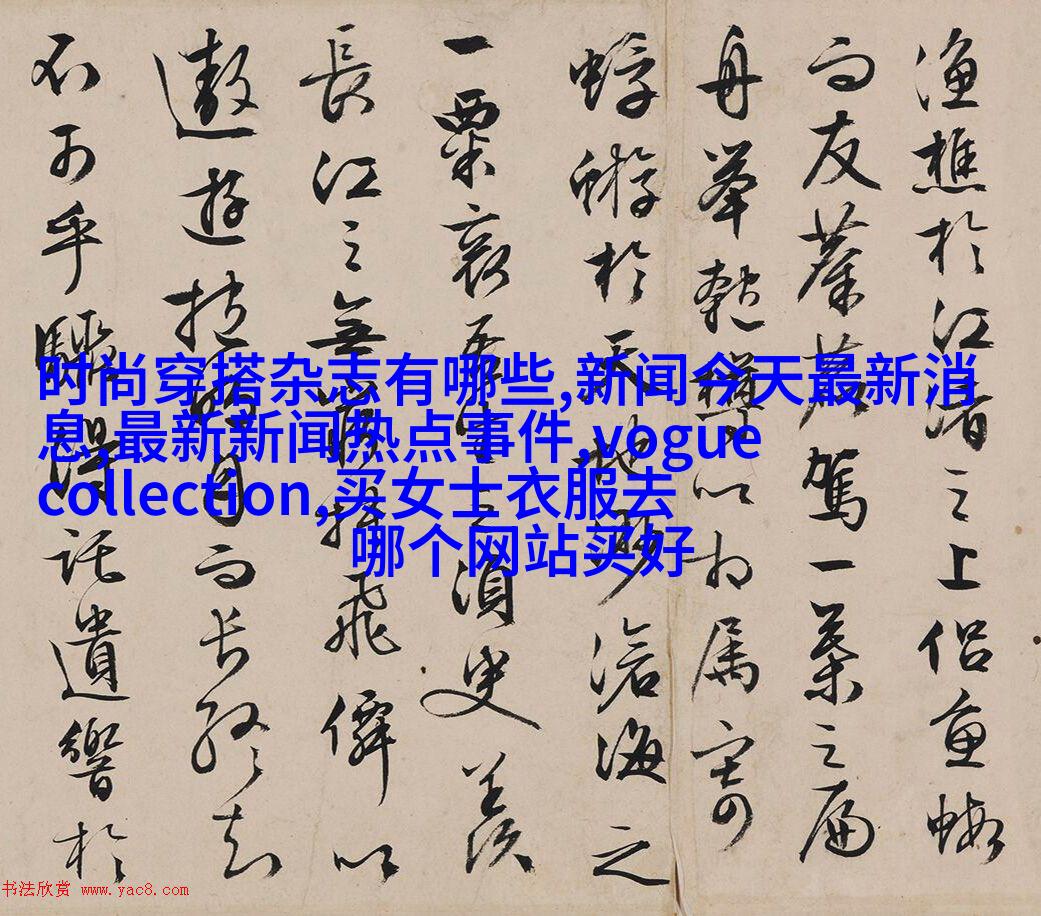 漁樵於江渚之上侣魚蝦
而友麋鹿駕一葉之扁
舟舉匏樽以相属寄
蜉蝣於天地渺滄海之
一粟哀吾生之須臾羡
長江之無窮挟飛僊以
遨遊抱明月而長終知
不可乎驟得託遺響於
时尚穿搭杂志有哪些,新闻今天最新消
息,最新新闻热点事件,vogue
collection,买女士衣服去
哪个网站买好
书法欣赏 www.yac8.com